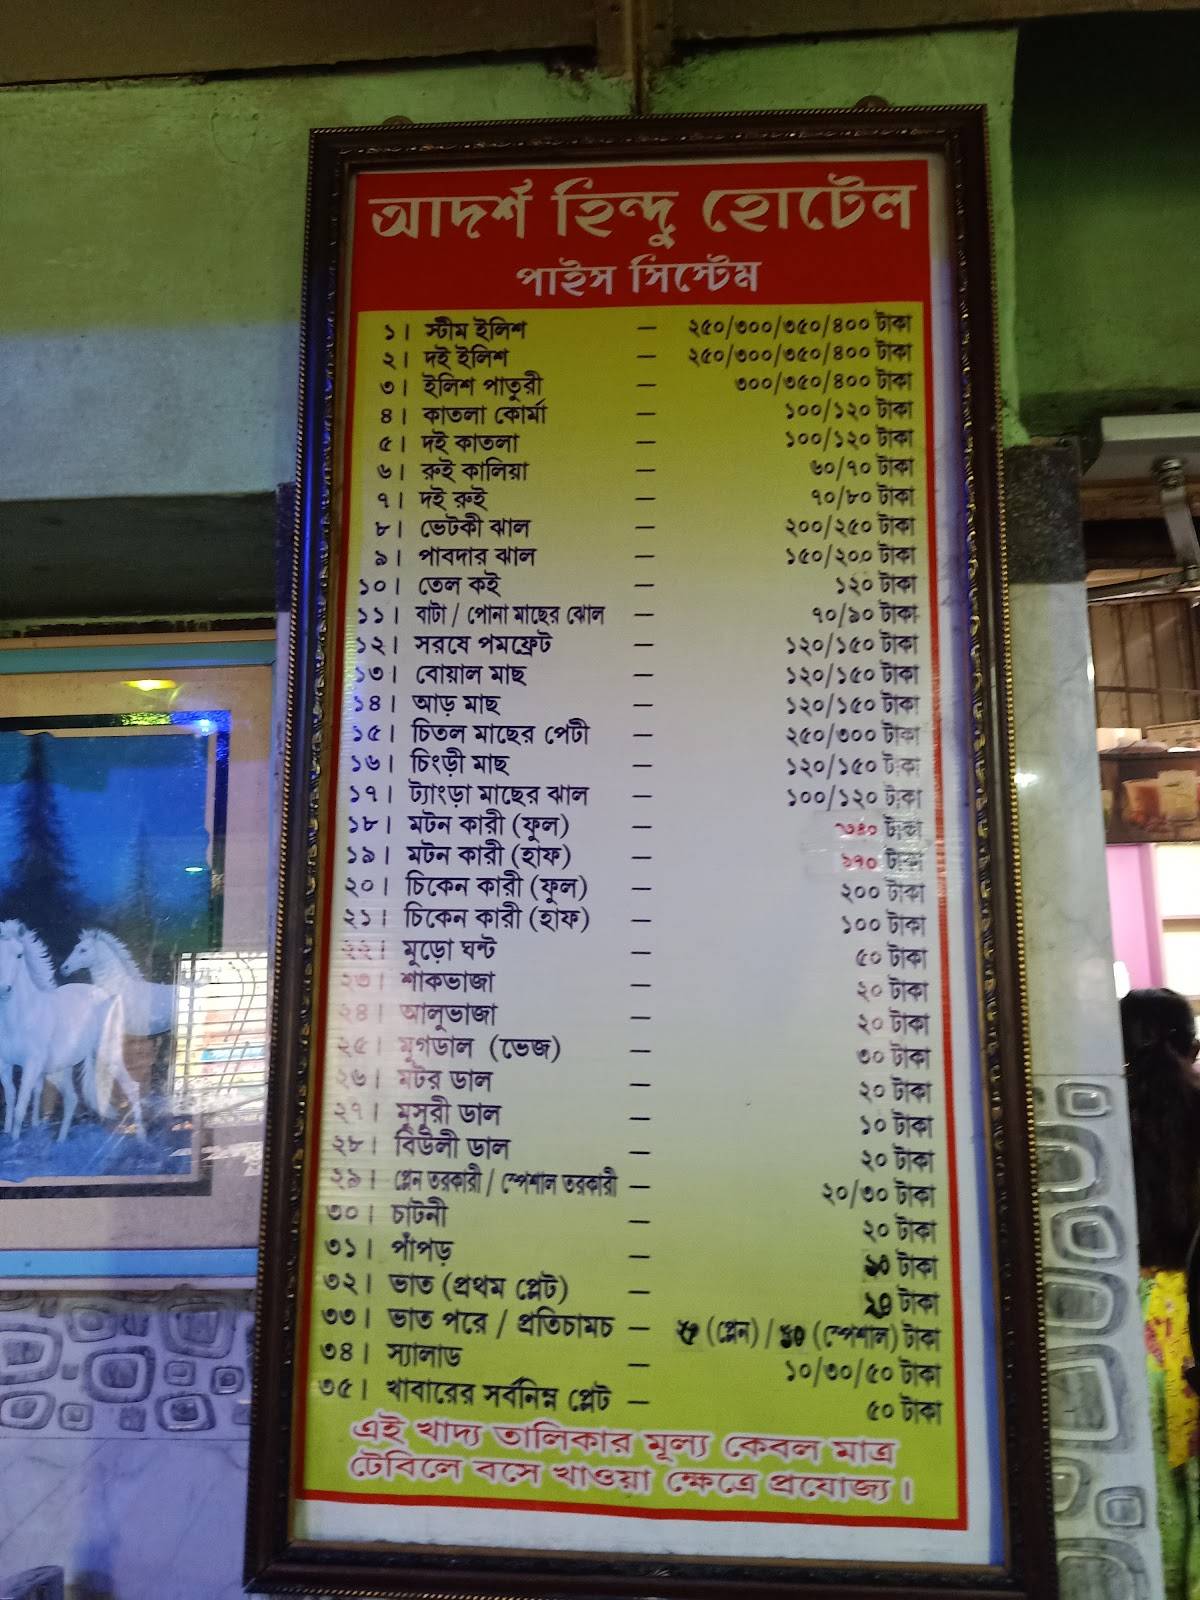 আদর্শ হিন্দু হোটেল
পাইস সিস্টেম
১। স্টীম ইলিশ — ২৫০/৩০০/৩৫০/৪০০ টাকা
২। দই ইলিশ — ২৫০/৩০০/৩৫০/৪০০ টাকা
৩। ইলিশ পাতুরী — ৩০০/৩৫০/৪০০ টাকা
৪। কাতলা কোর্মা — ১০০/১২০ টাকা
৫। দই কাতলা — ১০০/১২০ টাকা
৬। রুই কালিয়া — ৬০/৭০ টাকা
৭। দই রুই — ৭০/৮০ টাকা
৮। ভেটকী ঝাল — ২০০/২৫০ টাকা
৯। পাবদার ঝাল — ১৫০/২০০ টাকা
১০। তেল কই — ১২০ টাকা
১১। বাটা / পোনা মাছের ঝোল — ৭০/৯০ টাকা
১২। সরষে পমফ্রেট — ১২০/১৫০ টাকা
১৩। বোয়াল মাছ — ১২০/১৫০ টাকা
১৪। আড় মাছ — ১২০/১৫০ টাকা
১৫। চিতল মাছের পেটী — ২৫০/৩০০ টাকা
১৬। চিংড়ী মাছ — ১২০/১৫০ টাকা
১৭। ট্যাংড়া মাছের ঝাল — ১০০/১২০ টাকা
১৮। মটন কারী (ফুল) — ৩৪০ টাকা
১৯। মটন কারী (হাফ) — ১৭০ টাকা
২০। চিকেন কারী (ফুল) — ২০০ টাকা
২১। চিকেন কারী (হাফ) — ১০০ টাকা
২২। মুড়ো ঘন্ট — ৫০ টাকা
২৩। শাকভাজা — ২০ টাকা
২৪। আলুভাজা — ২০ টাকা
২৫। মুগডাল (ভেজ) — ৩০ টাকা
২৬। মটর ডাল — ২০ টাকা
২৭। মুসুরী ডাল — ১০ টাকা
২৮। বিউলী ডাল — ২০ টাকা
২৯। প্লেন তরকারী / স্পেশাল তরকারী — ২০/৩০ টাকা
৩০। চাটনী — ২০ টাকা
৩১। পাঁপড় — ১০ টাকা
৩২। ভাত (প্রথম প্লেট) — টাকা
৩৩। ভাত পরে / প্রতিচামচ — (প্লেন) / ১০ (স্পেশাল) টাকা
৩৪। স্যালাড — ১০/৩০/৫০ টাকা
৩৫। খাবারের সর্বনিম্ন প্লেট — ৫০ টাকা
এই খাদ্য তালিকার মূল্য কেবল মাত্র
টেবিলে বসে খাওয়া ক্ষেত্রে প্রযোজ্য।